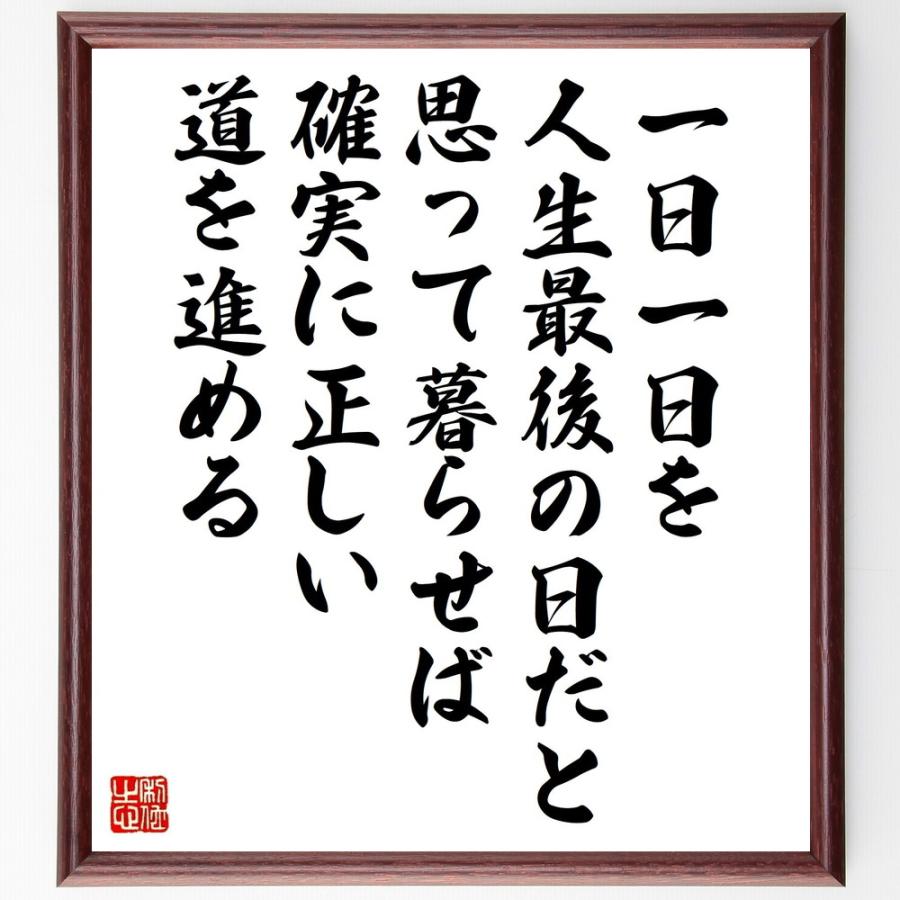 一日一日を
人生最後の日だと
思って暮らせば
確実に正しい
道を進める